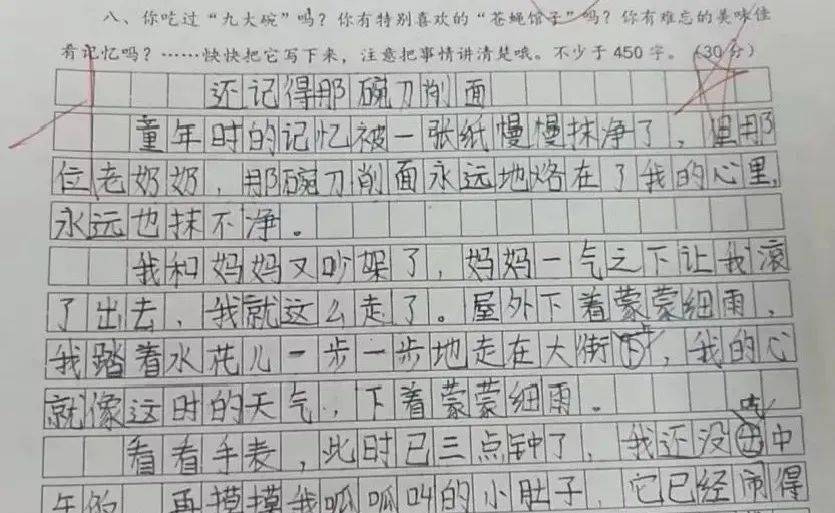 八、你吃过“九大碗”吗？你有特别喜欢的“苍蝇馆子”吗？你有难忘的美味佳
肴记忆吗？……快快把它写下来，注意把事情讲清楚哦。不少于450字。（30分）
还记得那碗刀削面
童年时的记忆被一张纸慢慢抹净了，但那
位老奶奶，那碗刀削面永远地烙在了我的心里，
永远也抹不净。
我和妈妈又吵架了，妈妈一气之下让我滚
了出去，我就这么走了。屋外下着蒙蒙细雨，
我踏着水花儿一步一步地走在大街上，我的心
就像这时的天气，下着蒙蒙细雨。
看看手表，此时已三点钟了，我还没吃中
午饭，再摸摸我呱呱叫的小肚子，它已经闹得